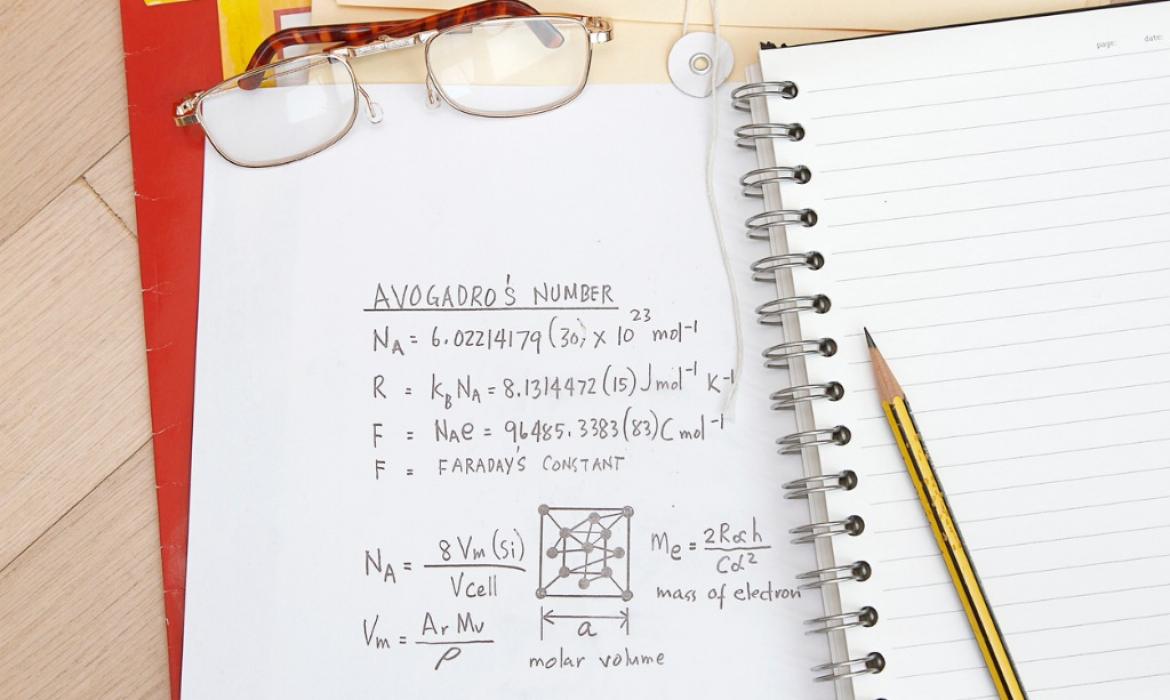 page: date:
AVOGADRO'S NUMBER
N_A = 6.02214179 (30) x 10^23 mol^-1
R = k_B N_A = 8.1314472 (15) J mol^-1 K^-1
F = N_A e = 96485.3383 (83) C mol^-1
F = FARADAY'S CONSTANT
N_A = 8 Vm (Si) / Vcell
Me = 2R∞h / Cα²
mass of electron
Vm = Ar Mu / ρ
a
molar volume